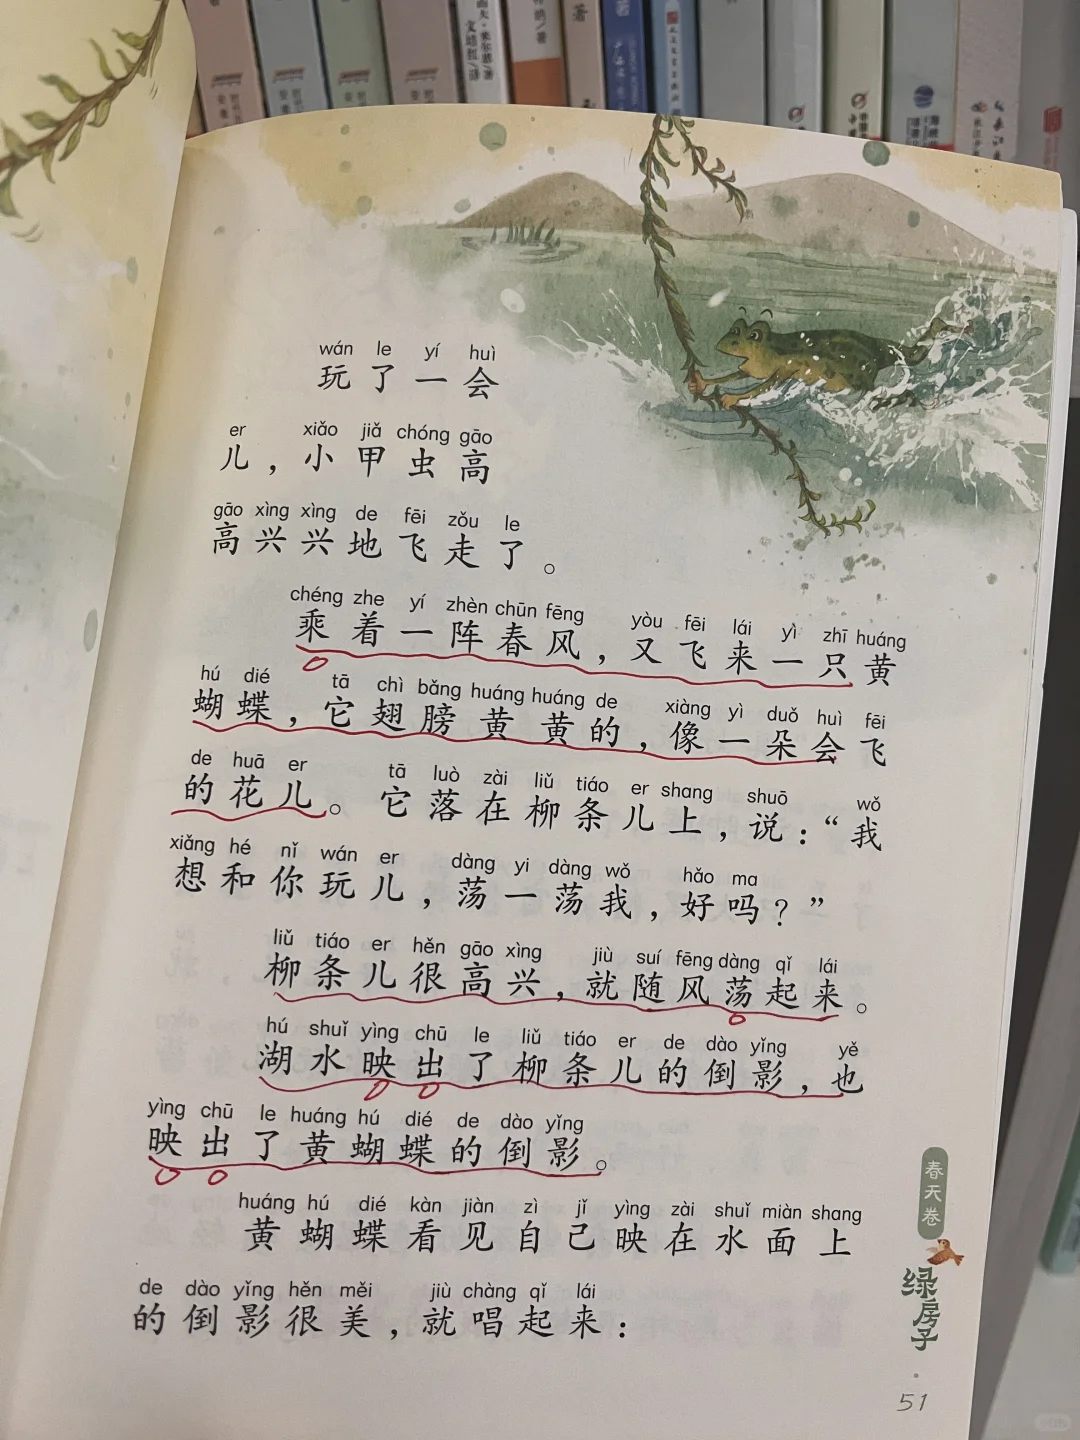 wán le yí huì
玩了一会
er xiǎo jiǎ chóng gāo
儿，小甲虫高
gāo xìng xìng de fēi zǒu le
高兴兴地飞走了。
chéng zhe yí zhèn chūn fēng yòu fēi lái yì zhī huáng
乘着一阵春风，又飞来一只黄
hú dié tā chì bǎng huáng huáng de xiàng yì duǒ huì fēi
蝴蝶，它翅膀黄黄的，像一朵会飞
de huā er tā luò zài liǔ tiáo er shang shuō wǒ
的花儿。它落在柳条儿上，说：“我
xiǎng hé nǐ wán er dàng yi dàng wǒ hǎo ma
想和你玩儿，荡一荡我，好吗？”
liǔ tiáo er hěn gāo xìng jiù suí fēng dàng qǐ lái
柳条儿很高兴，就随风荡起来。
hú shuǐ yìng chū le liǔ tiáo er de dào yǐng yě
湖水映出了柳条儿的倒影，也
yìng chū le huáng hú dié de dào yǐng
映出了黄蝴蝶的倒影。
huáng hú dié kàn jiàn zì jǐ yìng zài shuǐ miàn shang
黄蝴蝶看见自己映在水面上
de dào yǐng hěn měi jiù chàng qǐ lái
的倒影很美，就唱起来：
春天卷
绿房子
51